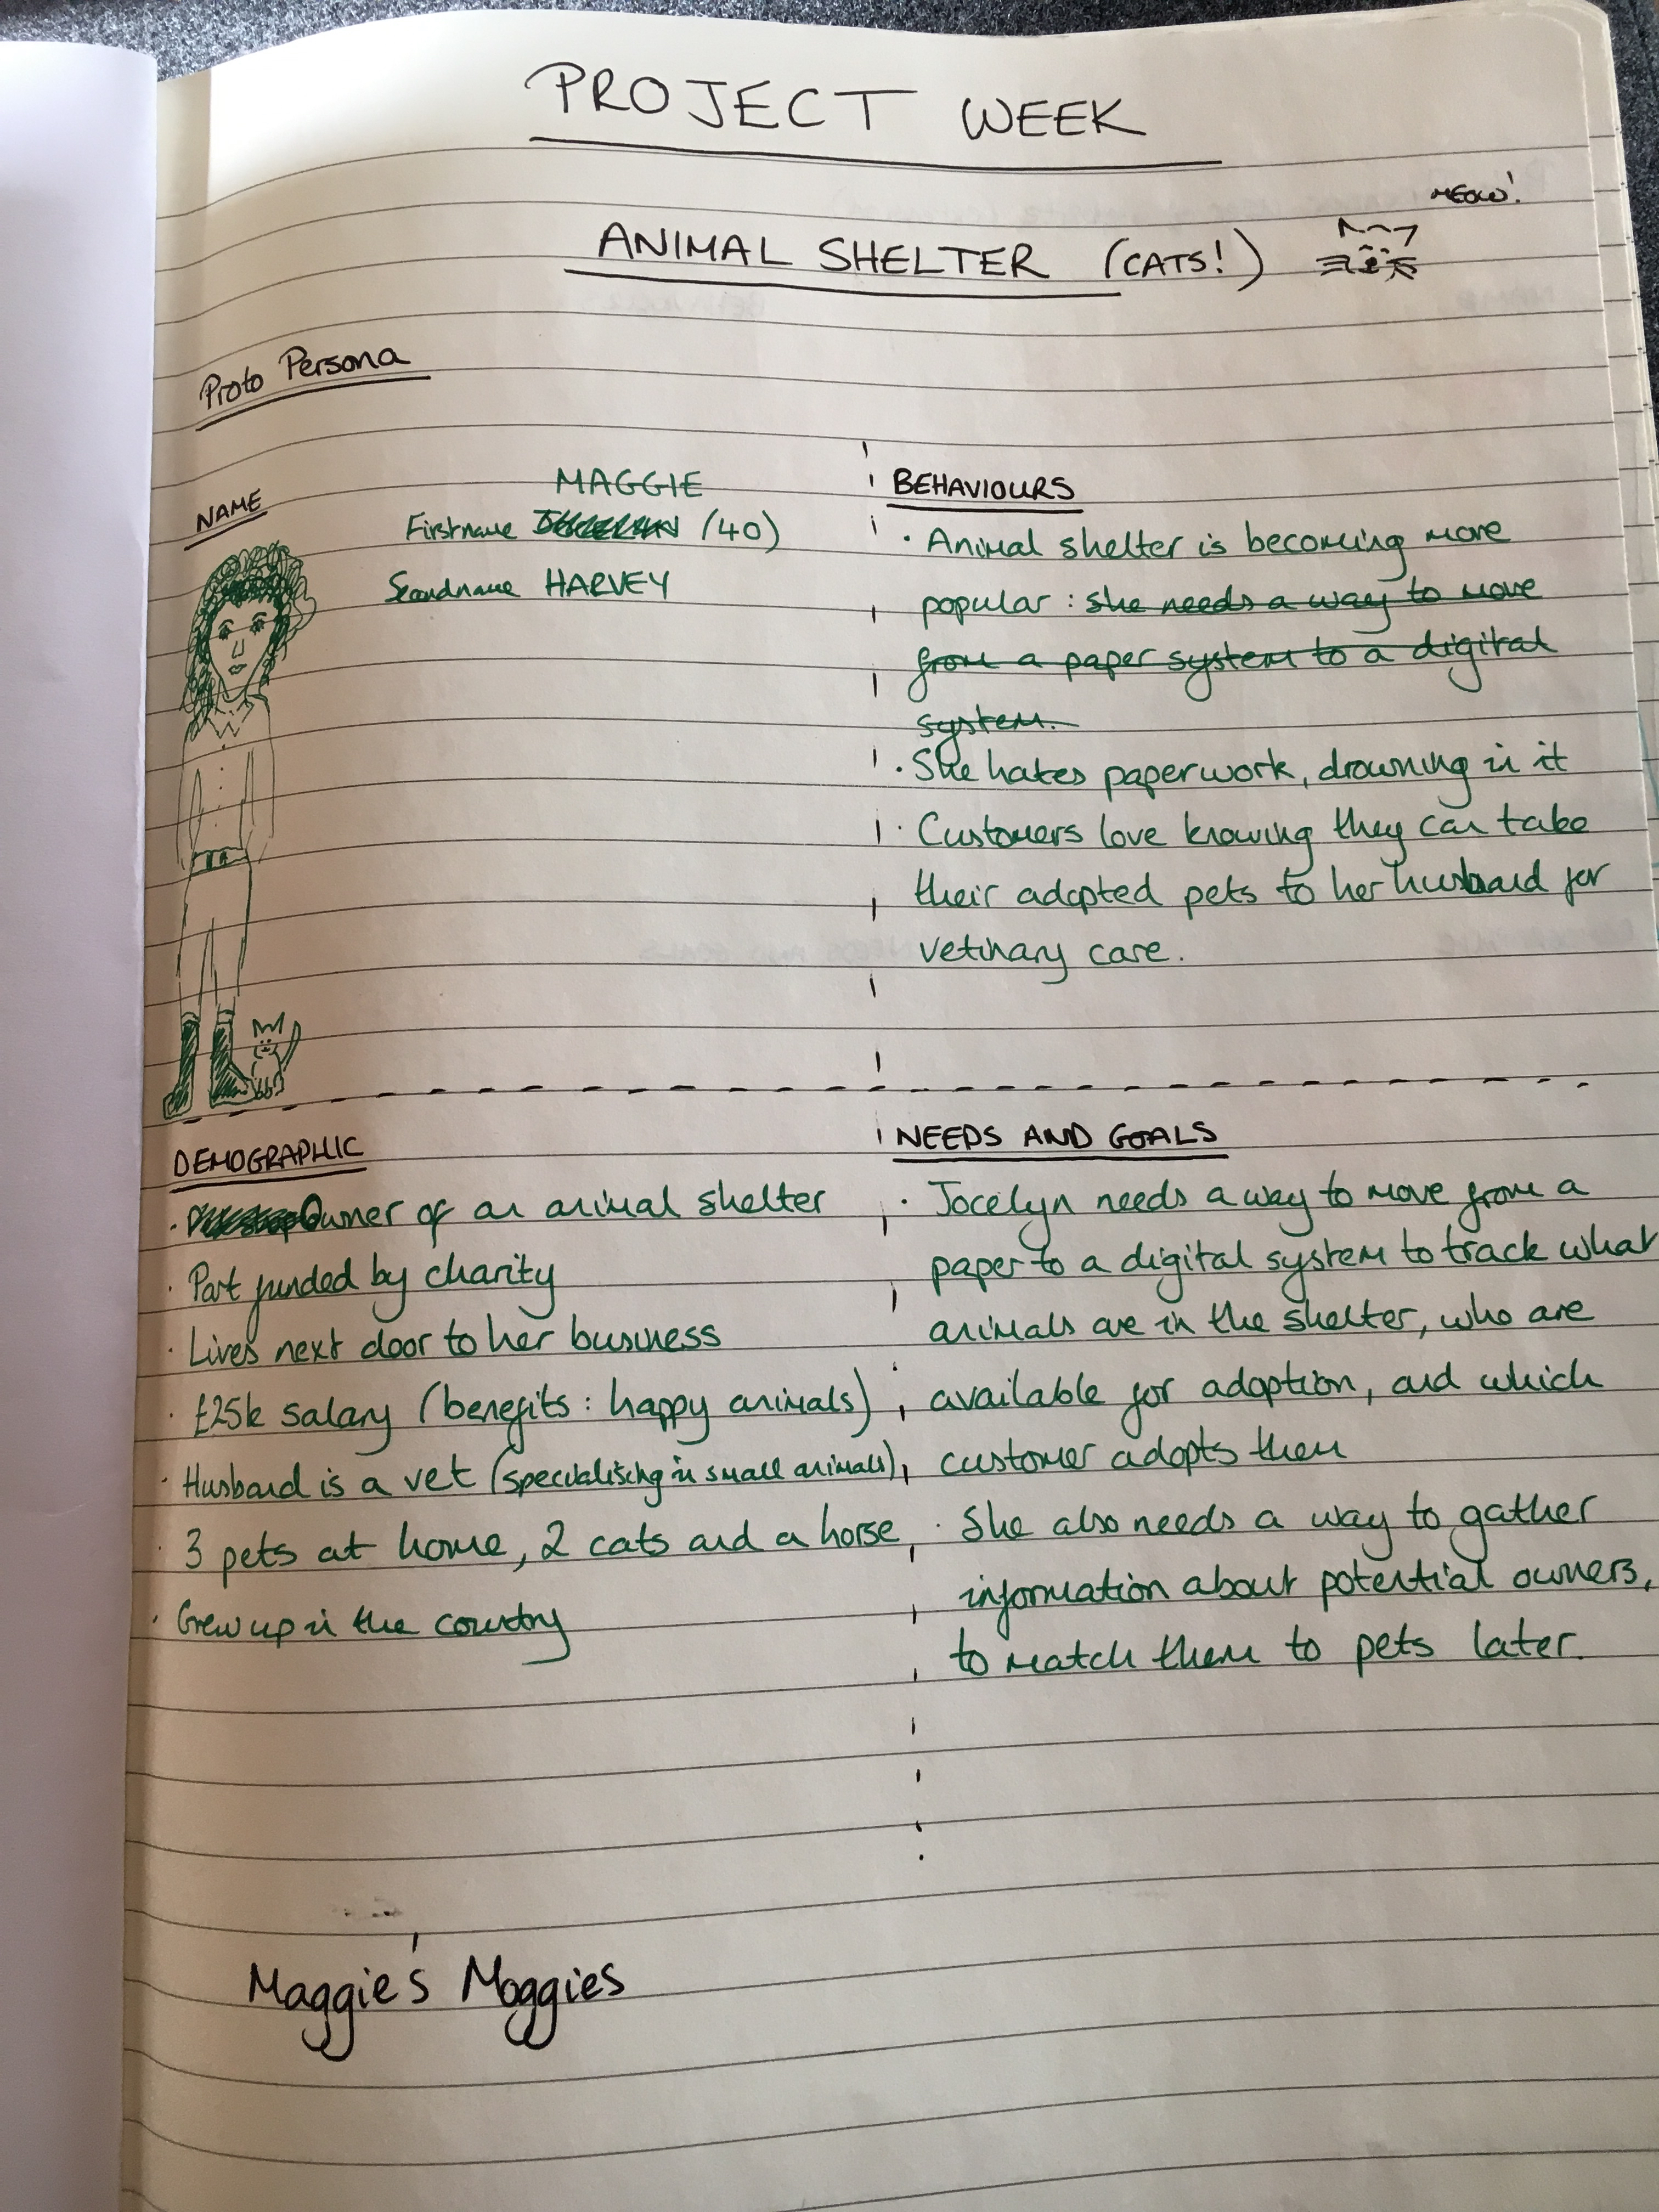 PROJECT WEEK
MEOW!
ANIMAL SHELTER (CATS!)
Proto Persona
NAME
MAGGIE
Firstname (40)
Secondname HARVEY
BEHAVIOURS
· Animal shelter is becoming more
popular : she needs a way to move
from a paper system to a digital
system.
· She hates paperwork, drowning in it
· Customers love knowing they can take
their adopted pets to her husband for
vetinary care.
DEMOGRAPHIC
· Owner of an animal shelter
· Part funded by charity
· Lives next door to her business
· £25k salary (benefits : happy animals)
· Husband is a vet (specialising in small animals)
· 3 pets at home, 2 cats and a horse
· Grew up in the country
NEEDS AND GOALS
· Jocelyn needs a way to move from a
paper to a digital system to track what
animals are in the shelter, who are
available for adoption, and which
customer adopts them
· She also needs a way to gather
information about potential owners,
to match them to pets later.
Maggie's Moggies